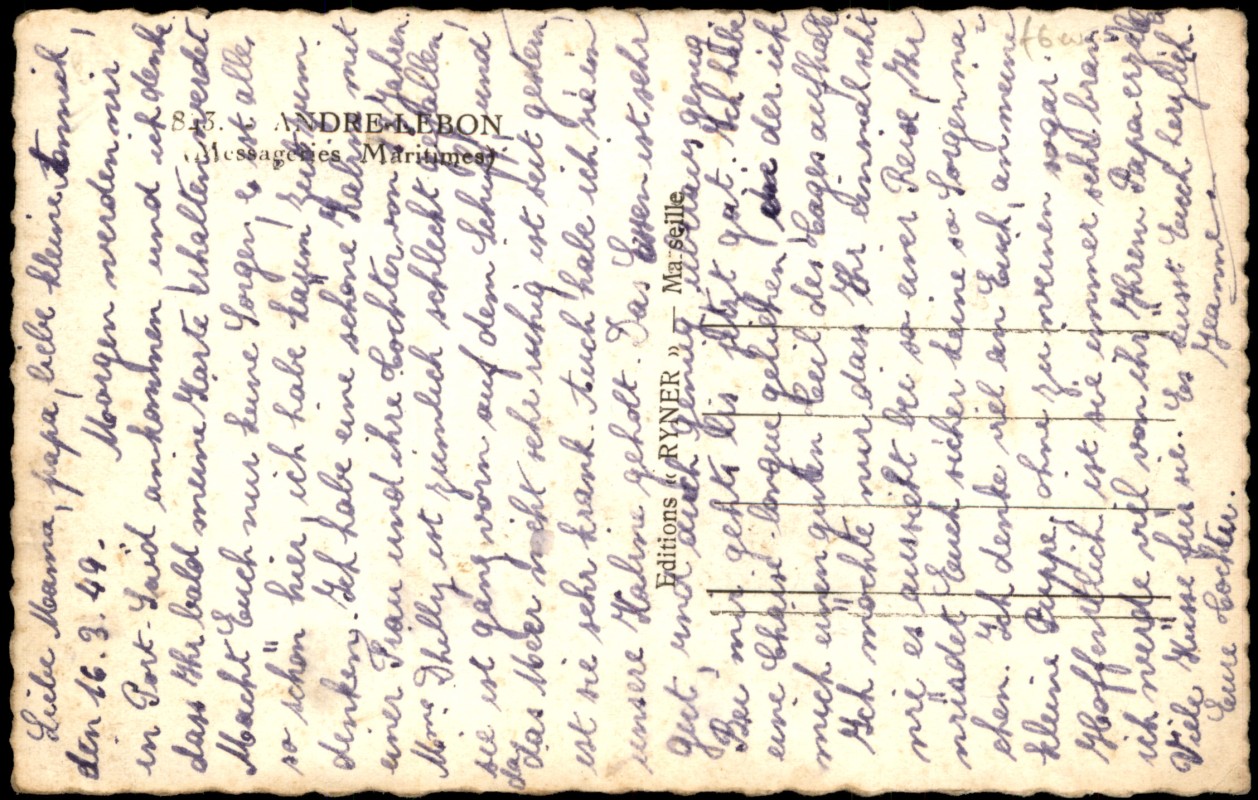 843. ANDRE-LEBON
(Messageries Maritimes)
Editions « RYNER » — Marseille
Liebe Mama, papa, liebe kleine Annich!
den 16. 3. 49. Morgen werden wir
in Port-Saïd ankommen und ich denke
dass Ihr bald meine Karte erhalten werdet
Macht Euch nur keine Sorgen, es ist alles
so schön hier, ich habe kaum Zeit zum
denken. Ich habe eine schöne Kabine mit
einer Frau und ihre Tochter von Jahren
Mme Dhelly ist ziemlich schlecht gefallen,
sie ist ganz vorn auf dem Schiff und
das Meer nicht sehr ruhig ist seit gestern
ist sie sehr krank. Auch habe ich sie in
unsere Kabine geholt. Das Essen ist sehr
gut und auch genug
Bei mir gehts bis jetzt gut. Ich habe
eine Chaise-longue geliehen, in der ich
mich einen guten Teil des Tages aufhalte
Ich möchte nur dass Ihr einmal seht
wie es aussieht bei so einer Reise, Ihr
würdet Euch sicher keine so Sorgen machen
chen. Ich denke viel an Euch, an meine
kleine Puppe, ohne zu weinen sogar.
Hoffentlich ist sie immer sehr brav
ich werde viel von ihr Ihrem Papa erzählen
Viele Küsse für sie. Es küsst Euch herzlich
Eure Tochter. Jeanne